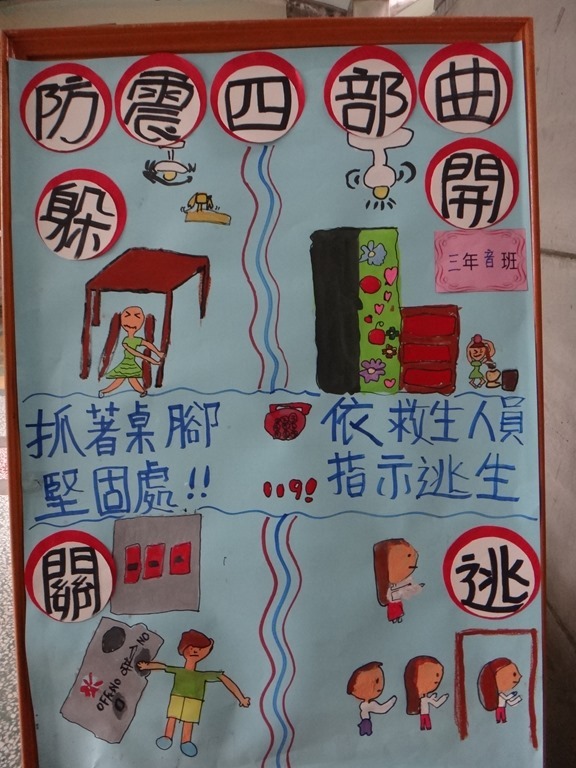 防震四部曲
躲
開
三年音班
抓著桌腳
堅固處!!
依救生人員
指示逃生
119!
關
逃
OFF
NO
OFF
NO